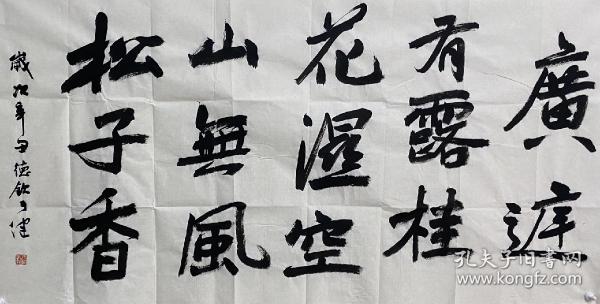 廣遮
有露桂
花濕空
山無風
松子香
歲次辛丑德欽子健
孔夫子旧书网
www.kongfz.com